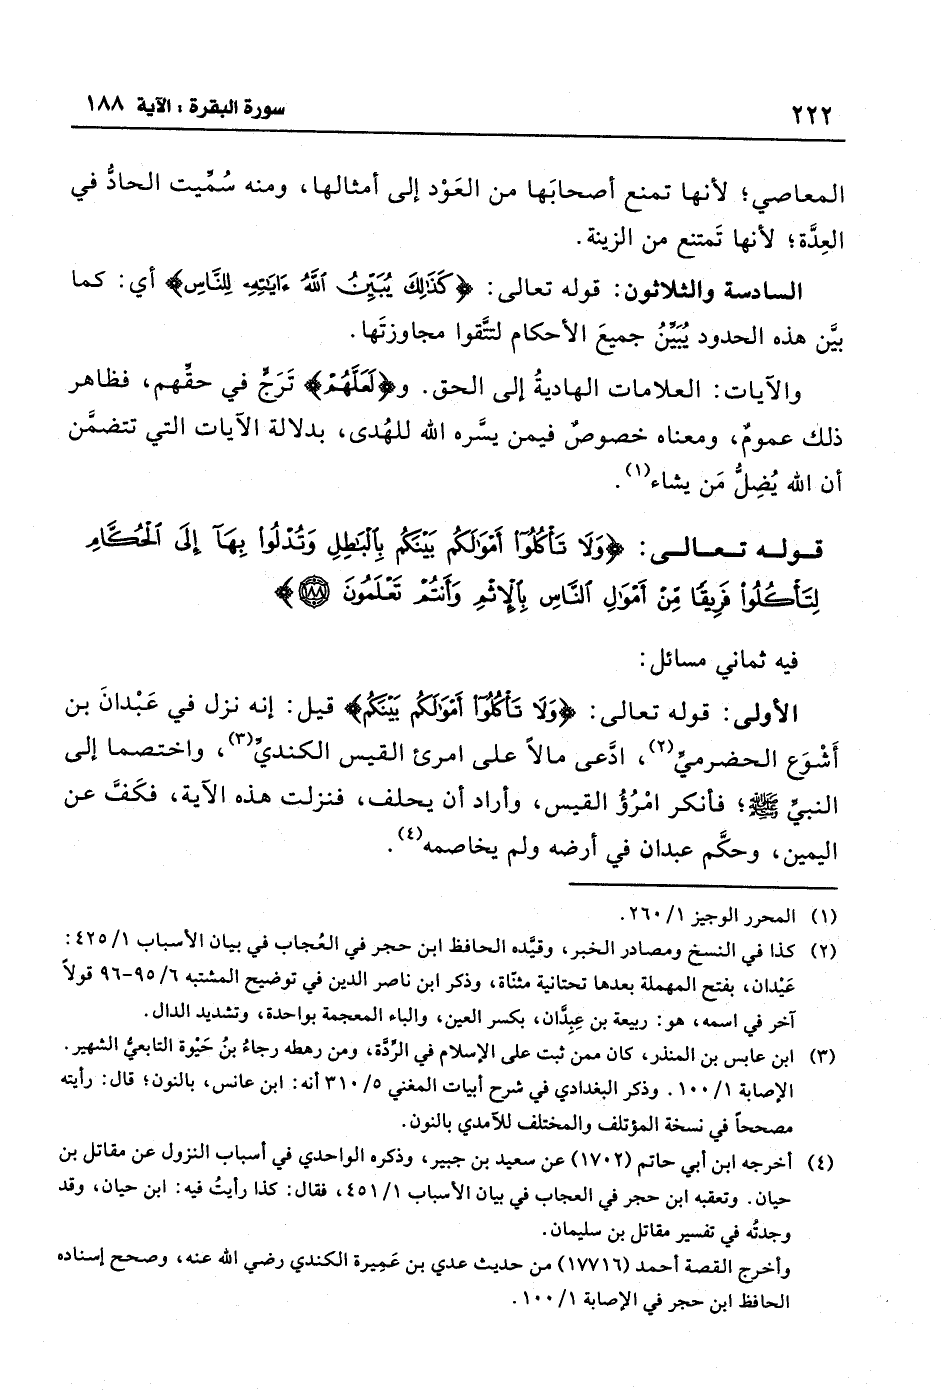 ٢٢٢
سورة البقرة : الآية ١٨٨
المعاصي؛ لأنها تمنع أصحابَها من العَوْد إلى أمثالها، ومنه سُمِّيت الحادُّ في
العِدَّة؛ لأنها تَمتنع من الزينة.
السادسة والثلاثون: قوله تعالى: ﴿كَذَٰلِكَ يُبَيِّنُ ٱللَّهُ ءَايَٰتِهِۦ لِلنَّاسِ﴾ أي: كما
بيَّن هذه الحدود يُبَيِّنُ جميعَ الأحكام لتتَّقوا مجاوزتَها.
والآيات: العلامات الهاديةُ إلى الحق. و﴿لَعَلَّهُمْ﴾ تَرَجٍّ في حقِّهم، فظاهر
ذلك عمومٌ، ومعناه خصوصٌ فيمن يسَّره الله للهُدى، بدلالة الآيات التي تتضمَّن
أن الله يُضِلُّ مَن يشاء(١).
قوله تعالى: ﴿وَلَا تَأْكُلُوٓا۟ أَمْوَٰلَكُم بَيْنَكُم بِٱلْبَٰطِلِ وَتُدْلُوا۟ بِهَآ إِلَى ٱلْحُكَّامِ
لِتَأْكُلُوا۟ فَرِيقًا مِّنْ أَمْوَٰلِ ٱلنَّاسِ بِٱلْإِثْمِ وَأَنتُمْ تَعْلَمُونَ ١٨٨﴾
فيه ثماني مسائل:
الأولى: قوله تعالى: ﴿وَلَا تَأْكُلُوٓا۟ أَمْوَٰلَكُم بَيْنَكُم﴾ قيل: إنه نزل في عَبْدانَ بن
أَشْوَع الحضرميِّ(٢)، ادَّعى مالاً على امرئ القيس الكنديِّ(٣)، واختصما إلى
النبيِّ ﷺ؛ فأنكر امْرُؤُ القيس، وأراد أن يحلف، فنزلت هذه الآية، فكَفَّ عن
اليمين، وحكَّم عبدان في أرضه ولم يخاصمه(٤).
(١) المحرر الوجيز ١/ ٢٦٠.
(٢) كذا في النسخ ومصادر الخبر، وقيَّده الحافظ ابن حجر في العُجاب في بيان الأسباب ١/ ٤٢٥:
عَيْدان، بفتح المهملة بعدها تحتانية مثنّاة، وذكر ابن ناصر الدين في توضيح المشتبه ٦/ ٩٥-٩٦ قولاً
آخر في اسمه، هو: ربيعة بن عِبِدَّان، بكسر العين، والباء المعجمة بواحدة، وتشديد الدال.
(٣) ابن عابس بن المنذر، كان ممن ثبت على الإسلام في الرِّدَّة، ومن رهطه رجاءُ بنُ حَيْوة التابعيُّ الشهير.
الإصابة ١/ ١٠٠. وذكر البغدادي في شرح أبيات المغني ٥/ ٣١٠ أنه: ابن عانس، بالنون؛ قال: رأيته
مصححاً في نسخة المؤتلف والمختلف للآمدي بالنون.
(٤) أخرجه ابن أبي حاتم (١٧٠٢) عن سعيد بن جبير، وذكره الواحدي في أسباب النزول عن مقاتل بن
حيان. وتعقبه ابن حجر في العجاب في بيان الأسباب ١/ ٤٥١، فقال: كذا رأيتُ فيه: ابن حيان، وقد
وجدتُه في تفسير مقاتل بن سليمان.
وأخرج القصة أحمد (١٧٧١٦) من حديث عدي بن عَمِيرة الكندي رضي الله عنه، وصحح إسناده
الحافظ ابن حجر في الإصابة ١/ ١٠٠.